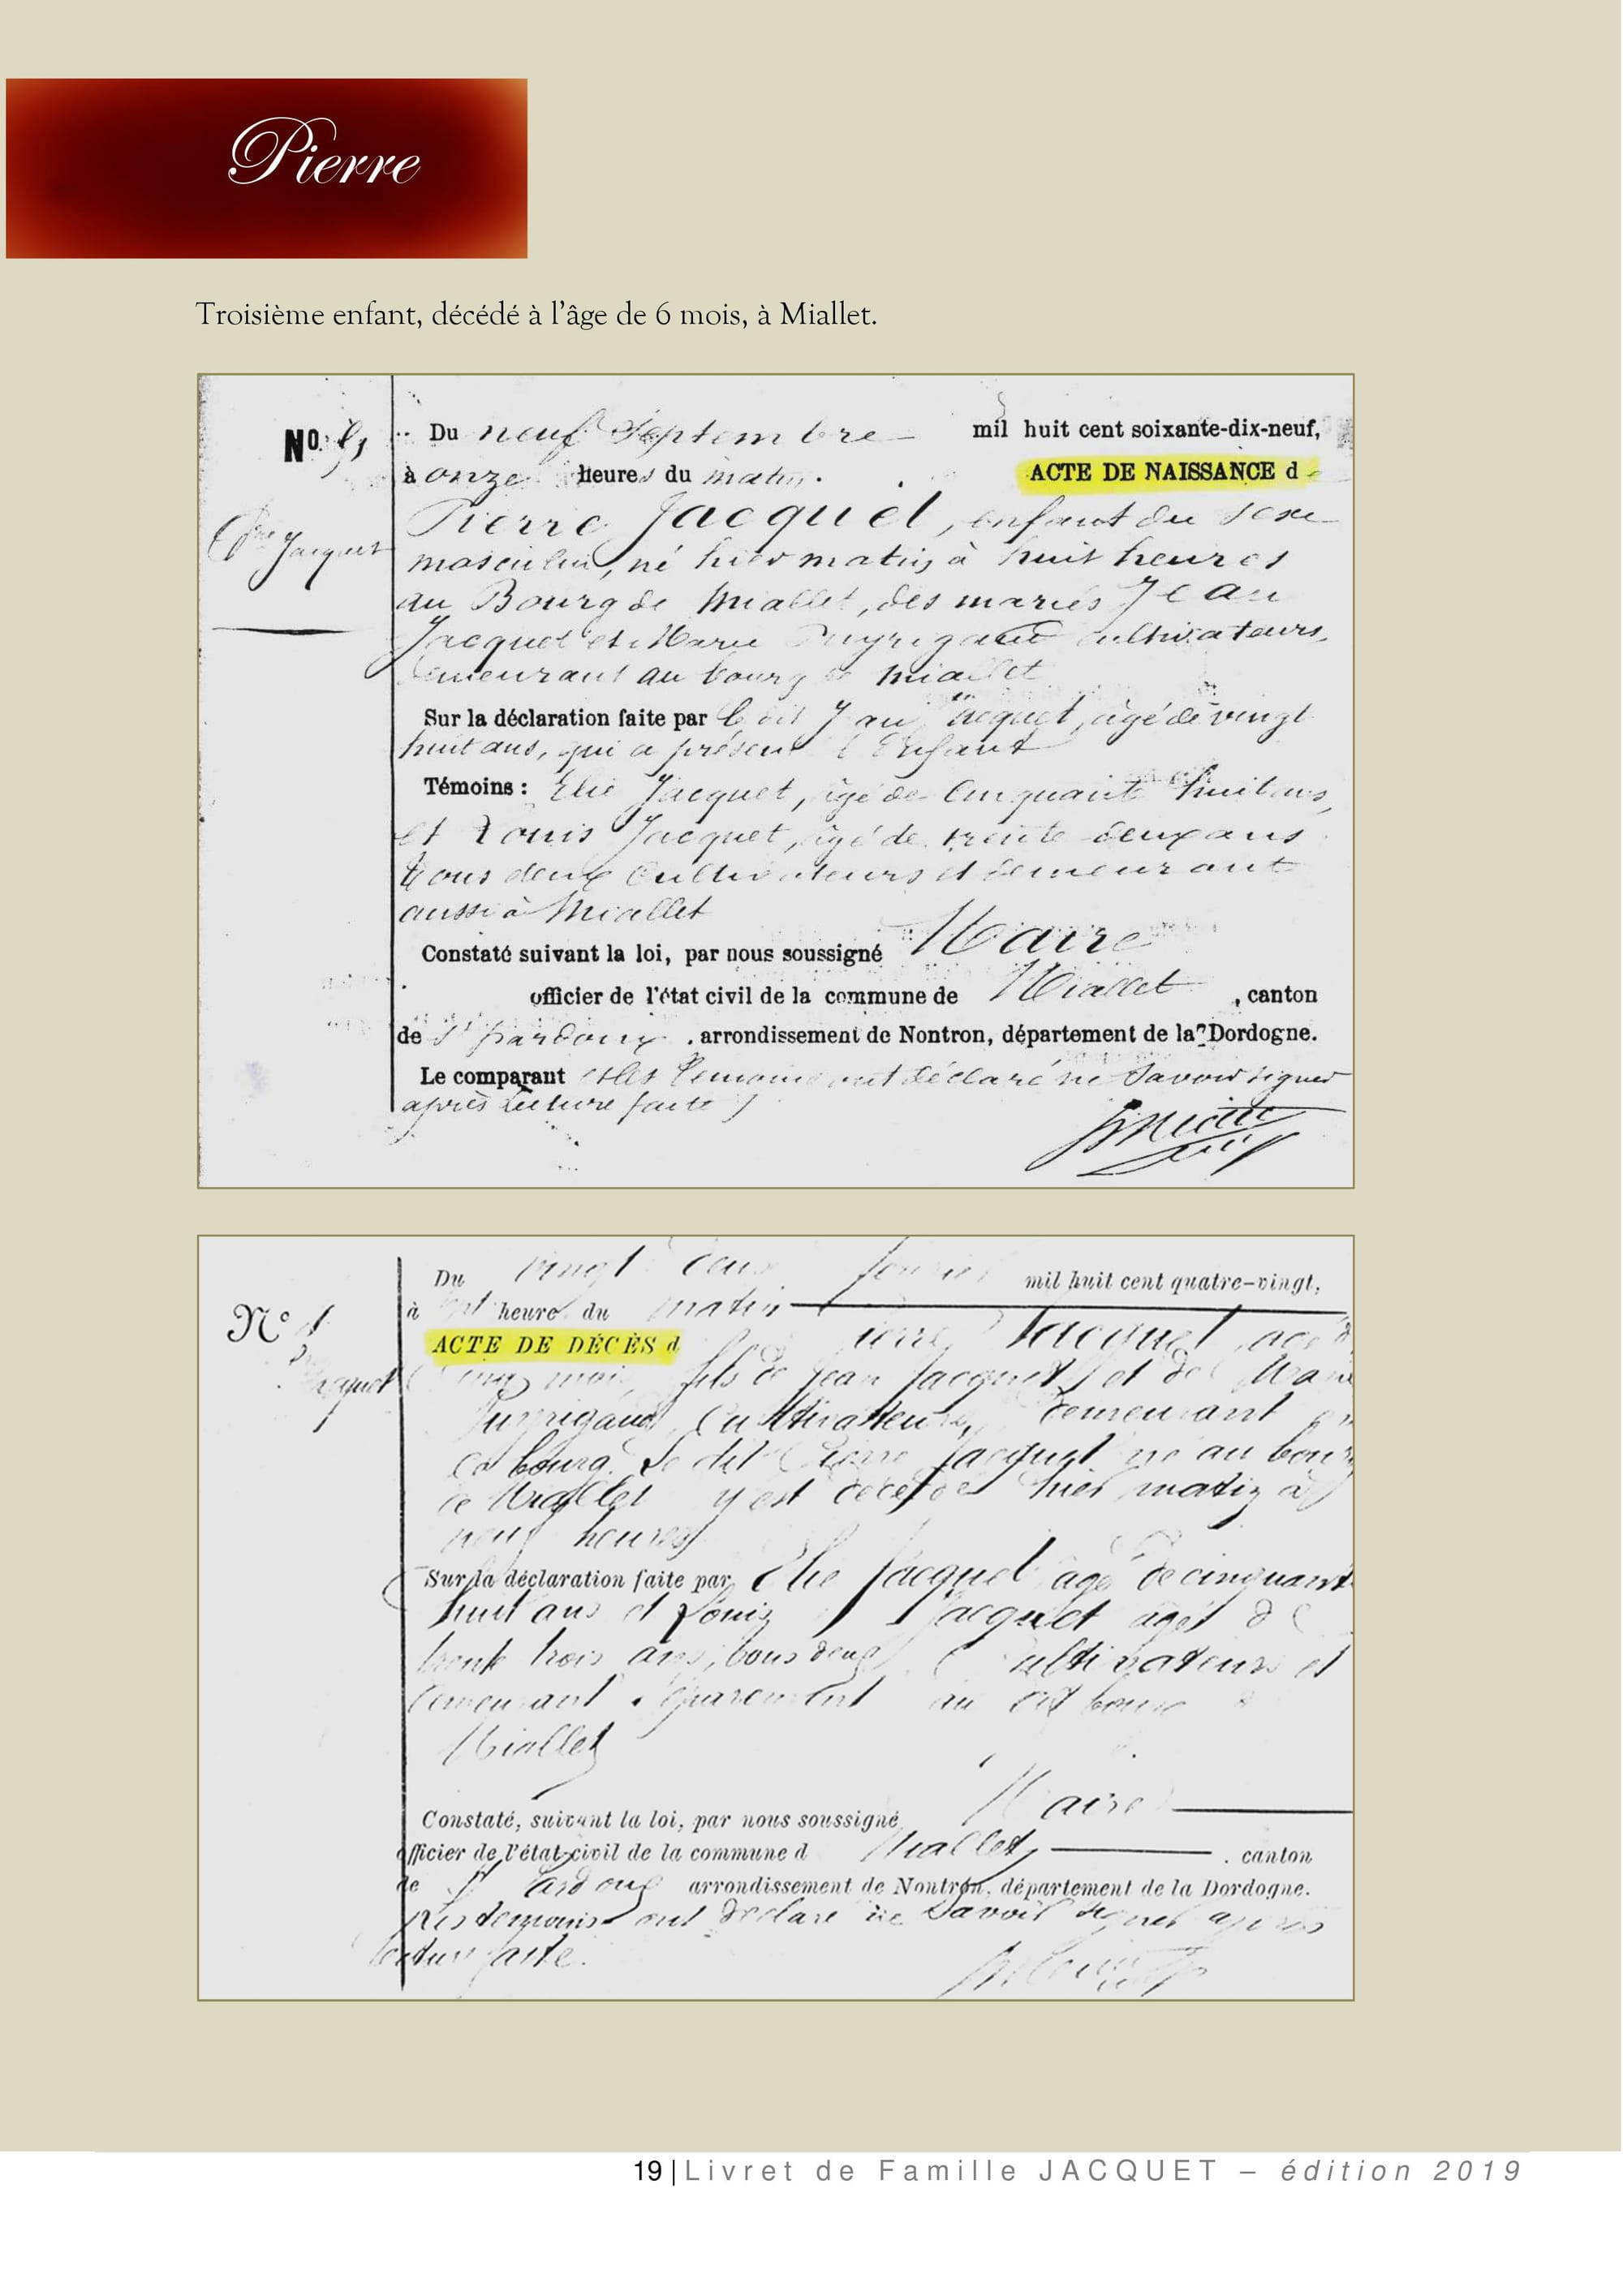 Pierre
Troisième enfant, décédé à l'âge de 6 mois, à Miallet.
No.
Du neuf Septembre mil huit cent soixante-dix-neuf,
à onze heures du matin. ACTE DE NAISSANCE d
Pierre Jacquet, enfant du sexe
Pre Jacquet
masculin, né hier matin, à huit heures
au Bourg de Miallet, des mariés Jean
Jacquet et Marie Puyrigaud cultivateurs,
demeurant au bourg de Miallet
Sur la déclaration faite par le dit Jean Jacquet, âgé de vingt
huit ans, qui a présenté l'Enfant
Témoins : Elie Jacquet, âgé de Cinquante huit ans,
et Louis Jacquet, âgé de trente deux ans
tous deux Cultivateurs et demeurant
aussi à Miallet
Constaté suivant la loi, par nous soussigné Maire
officier de l'état civil de la commune de Miallet, canton
de St Pardoux, arrondissement de Nontron, département de la Dordogne.
Le comparant et les témoins ont déclaré ne Savoir signer
après Lecture faite
Du vingt deux mil huit cent quatre-vingt,
à heure du matin
No
ACTE DE DÉCÈS d Pierre Jacquet,
Jacquet
cinq mois, fils de Jean Jacquet et de Marie
Puyrigaud, Cultivateurs, demeurant
ce bourg. Le dit Pierre Jacquet né au bourg
de Miallet y est décédé hier matin à
neuf heures
Sur la déclaration faite par Elie Jacquet âgé de cinquante
huit ans et Louis Jacquet âgé de
trente trois ans, tous deux Cultivateurs et
demeurant séparément au dit bourg de
Miallet
Constaté, suivant la loi, par nous soussigné Maire
officier de l'état-civil de la commune d Miallet, canton
de St Pardoux arrondissement de Nontron, département de la Dordogne.
Les témoins ont déclaré ne Savoir signer après
lecture faite.
19|Livret de Famille JACQUET – édition 2019